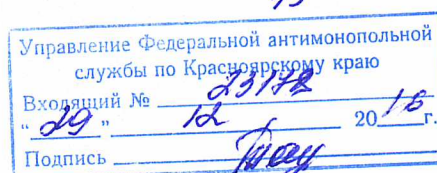 Управление Федеральной антимонопольной
службы по Красноярскому краю
Входящий № 23172
"29" 12 2016 г.
Подпись